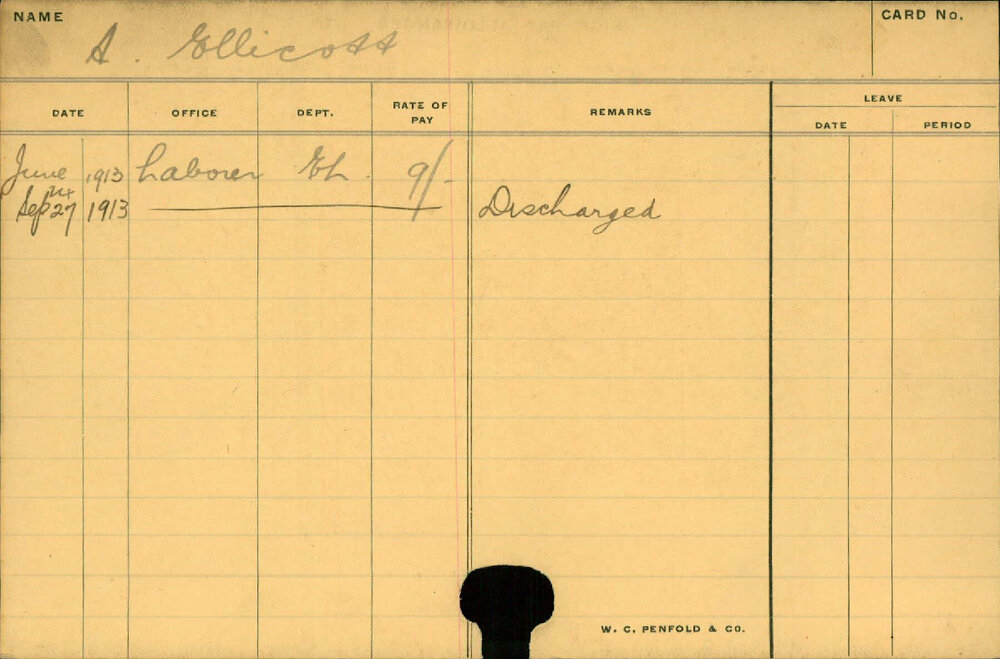 NAME
A. Ellicott
CARD No.
DATE
OFFICE
DEPT.
RATE OF PAY
REMARKS
LEAVE
DATE
PERIOD
June 1913 Laborer Eh. 9/-
24
Sep 27 1913 Discharged
W. C. PENFOLD & CO.